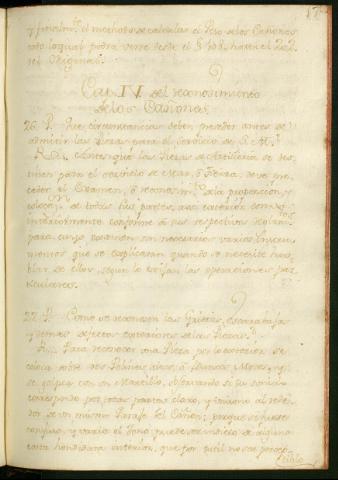 17
y finalm.te el methodo de calcular el Peso de los Cañones
todo lo qual podra verse desde el § 108. hasta el
del Original.
Cap. IV. del reconocimiento
de los Cañones.
26. P. Que circunstancias deben preceder antes de
admitir las Piezas para el servicio de S. M.
R. Antes que las Piezas de Artilleria se des-
tinen para el servicio de Mar, ò Tierra, deve pre-
ceder el Examen, ò reconocim.to de la proporcion, y
de todas sus partes, asi exterior como
interiormente conforme à sus respectivos
para cuya son necesarios varios Instru-
mentos que se explicaran quando se necesite ha-
blar de ellos, segun lo exijan las operaciones par-
ticulares.
27. P. Como se reconocen las Grietas, escarabajos
y demas defectos exteriores de las Piezas?
R. Para reconocer una Pieza por lo exterior se
coloca sobre dos Polines, y
se golpea con un Martillo, observando si su sonido
corresponde por todas partes claro, y al rededor
de un mismo Parage del Cañon; porque si fuese
confuso, y vario el tono, puede ser indicio de alguna
honda interior, que por sutil no sea percep-
tible